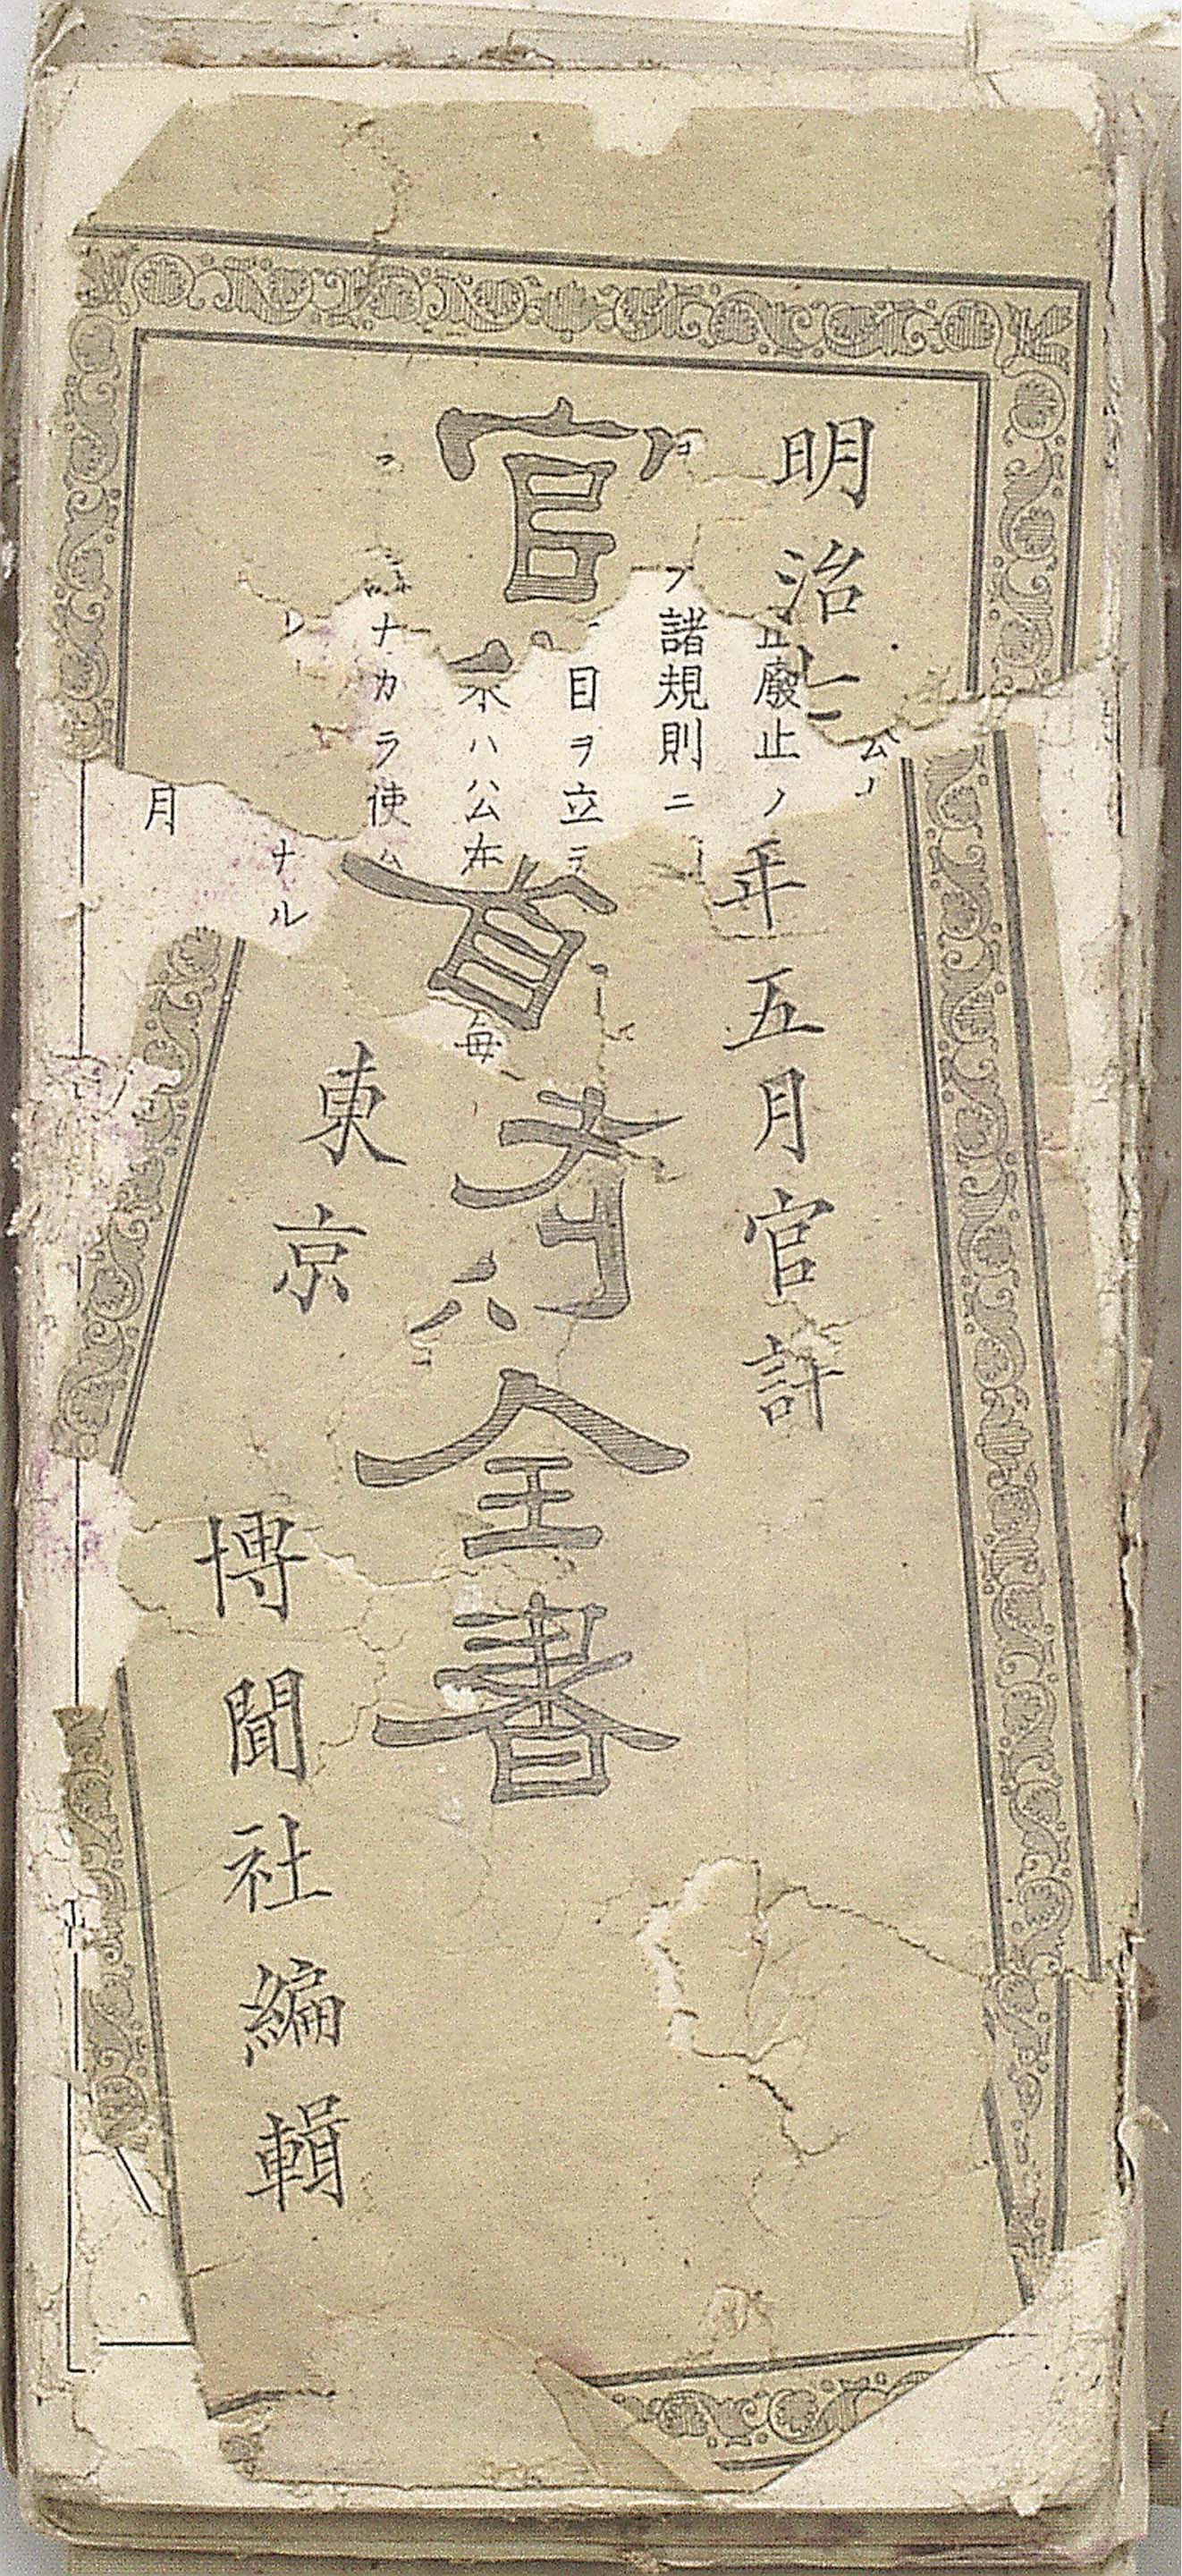 明治七年五月官許
官省
全書
東京
博聞社編輯
廢止ノ
ノ諸規則ニ
目ヲ立テ
ハ公布
毎
ナカラ使ム
ナル
月